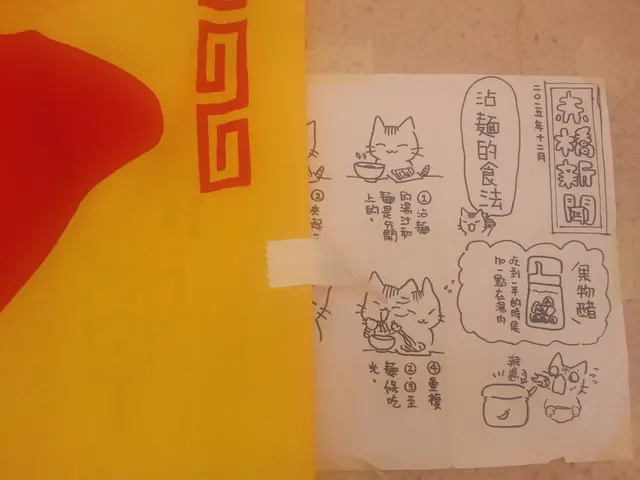 赤橋新聞
二〇二五年十二月
沾麵的食法
果物醋
吃到一半的時候
加一點在湯內
辣醬
①沾麵
的湯汁和
麵是分開
上的、
②夾起
④重複
②、③至
麵條吃
光、